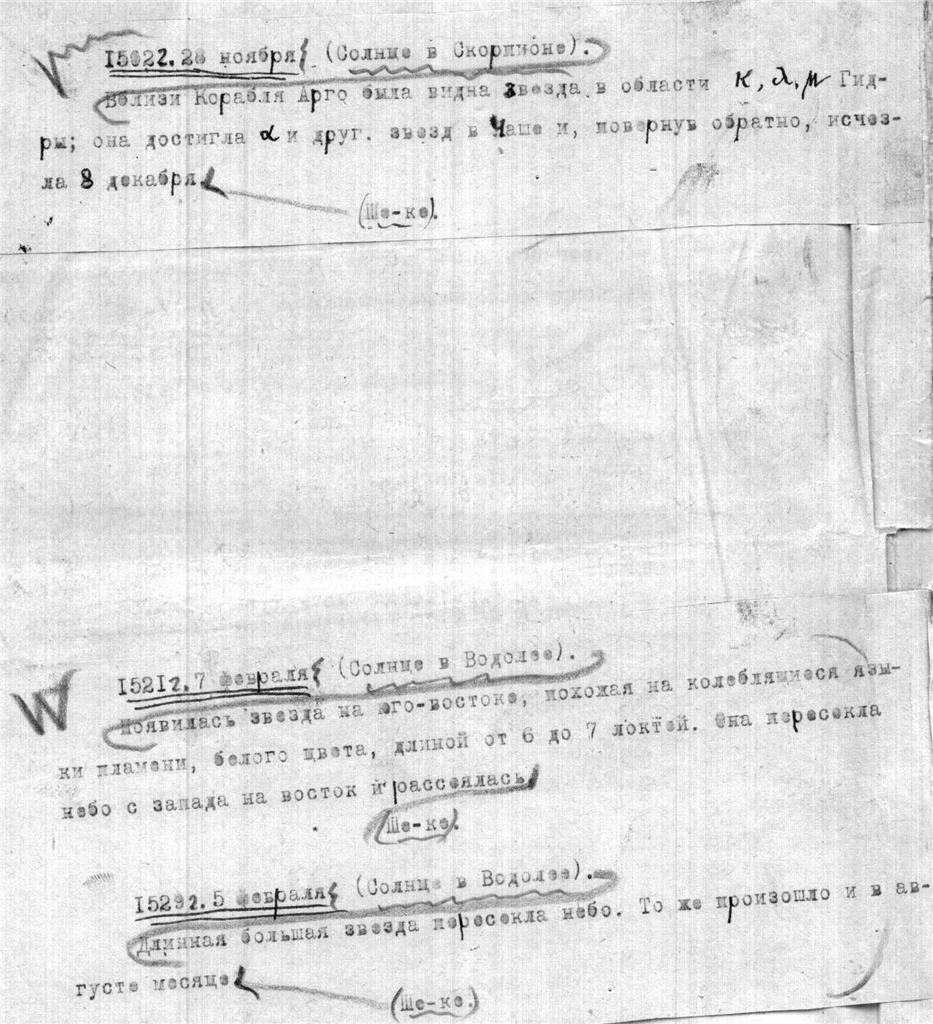 1502г. 28 ноября (Солнце в Скорпионе).
Вблизи Корабля Арго была видна звезда в области κ, λ, μ Гид-
ры; она достигла α и друг. звезд в Чаше и, повернув обратно, исчез-
ла 8 декабря
(Ше-ке).
1521г. 7 февраля (Солнце в Водолее).
Появилась звезда на юго-востоке, похожая на колеблящиеся язы-
ки пламени, белого цвета, длиной от 6 до 7 локтей. Она пересекла
небо с запада на восток и рассеялась
(Ше-ке).
1529г. 5 февраля (Солнце в Водолее).
Длинная большая звезда пересекла небо. То же произошло и в ав-
густе месяце
(Ше-ке.)